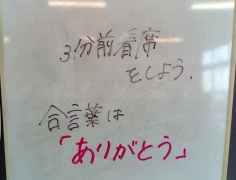 3分前着席
をしよう.
合言葉は
「ありがとう」